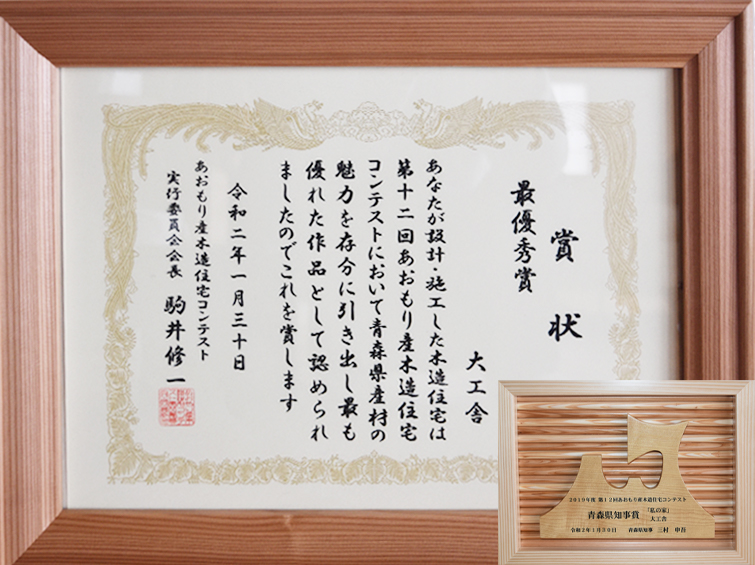 賞状
最優秀賞
大工舎
あなたが設計・施工した木造住宅は
第十二回あおもり産木造住宅
コンテストにおいて青森県産材の
魅力を存分に引き出し最も
優れた作品として認められ
ましたのでこれを賞します
令和二年一月三十日
あおもり産木造住宅コンテスト
実行委員会会長 駒井修一
2019年度 第12回あおもり産木造住宅コンテスト
青森県知事賞 「私の家」
大工舎
令和2年1月30日 青森県知事 三村 申吾